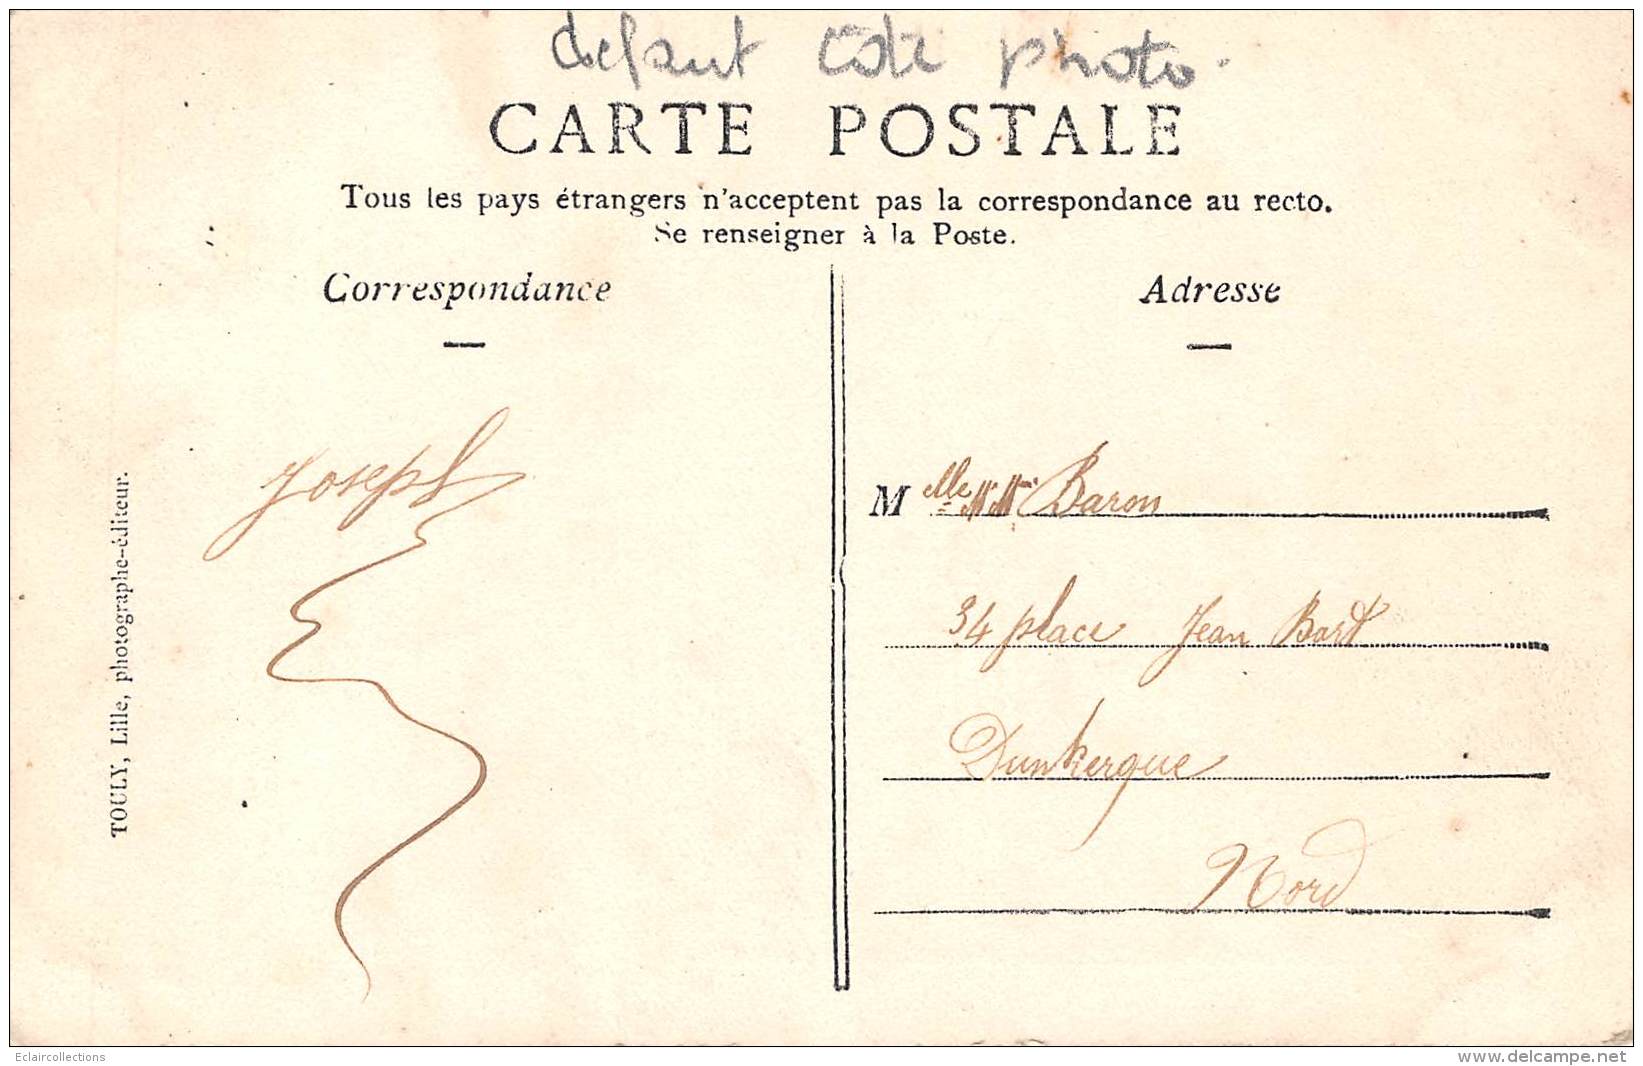 defaut côté photo.
CARTE POSTALE
Tous les pays étrangers n'acceptent pas la correspondance au recto.
Se renseigner à la Poste.
Correspondance
Joseph
TOULY, Lille, photographe-éditeur.
Adresse
Melle Baron
34 place Jean Bart
Dunkerque
Nord
Eclaircollections
www.delcampe.net